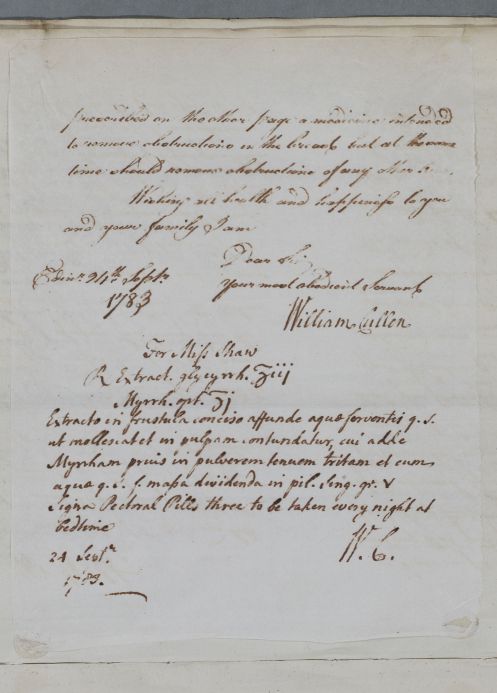 prescribed on the other page a medicine intended
to remove obstructions in the breast but at the same
time should remove obstructions of any other
Wishing all health and happiness to you
and your family I am
Dear Sir
Edinr. 24th Septr. your most obedient Servant
1783
William Cullen
For Miss Shaw
℞ Extract. glycyrrh. ʒiij
Myrrh. opt. ʒj
Extracto in frustula conciso affunde aquæ ferventis q. s.
ut mollescat et in pulpam contundatur, cui adde
Myrrham prius in pulverem tenuem tritam et cum
aquæ q. s. f. massa dividenda in pil. sing. gr. v
Signa Pectoral Pills three to be taken every night at
bedtime
24 Septr. W. C.
1783.